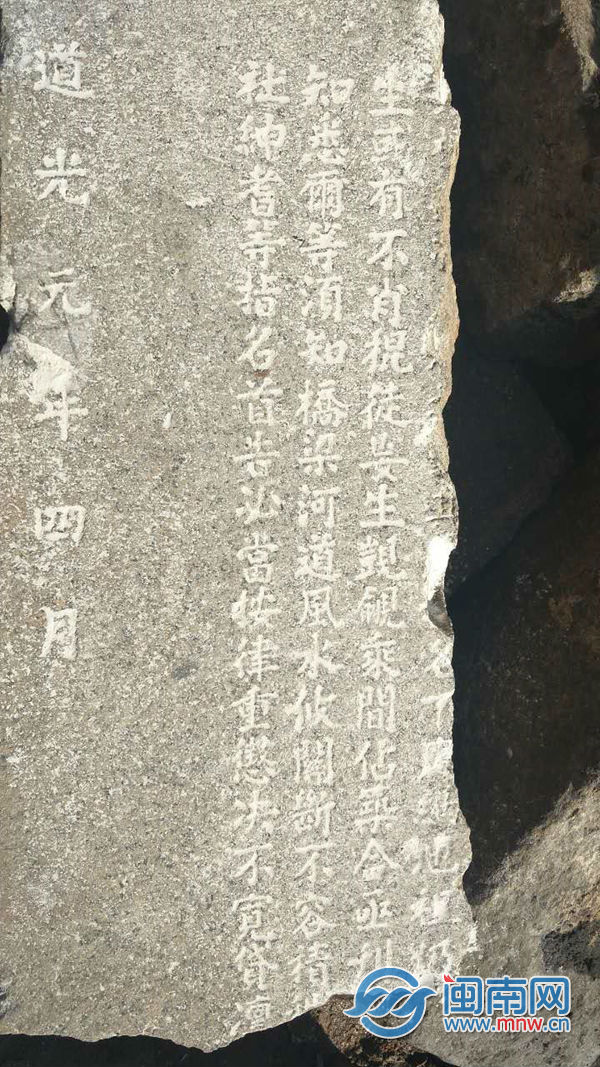 下
生或有不肖棍徒妄生覬覦乘間佔築合亟
知悉爾等須知橋梁河道風水攸關斷不容
社紳耆等指名首告必當按律重懲决不寬貸
道光元年四月
闽南网
www.mnw.cn